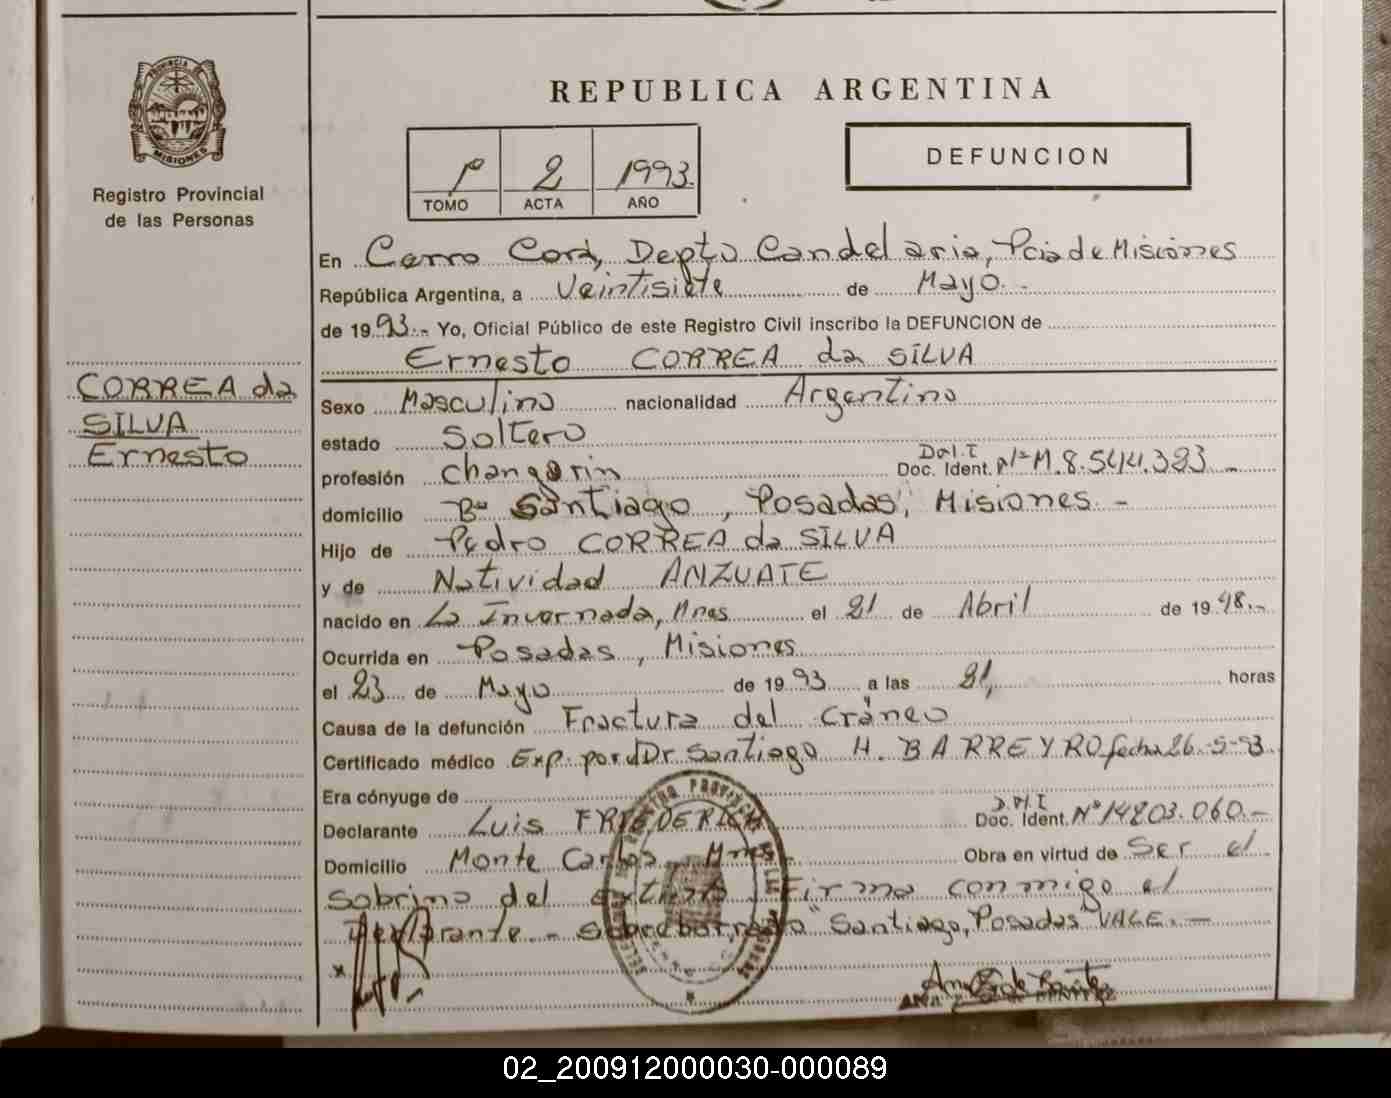 PROVINCIA DE
MISIONES
Registro Provincial
de las Personas
CORREA da
SILVA
Ernesto
REPUBLICA ARGENTINA
1º 2 1993.
TOMO ACTA AÑO
DEFUNCION
En Cerro Corá, Depto Candelaria, Pcia de Misiones
República Argentina, a Veintisiete de Mayo.-
de 1993.- Yo, Oficial Público de este Registro Civil inscribo la DEFUNCION de
Ernesto CORREA da SILVA
Sexo Masculino nacionalidad Argentino
estado Soltero
profesión changarin D.N.I Doc. Ident. Nº M.8.544.383.-
domicilio Bº Santiago, Posadas, Misiones.-
Hijo de Pedro CORREA da SILVA
y de Natividad ANZUATE
nacido en La Invernada, Mnes el 21 de Abril de 1948.-
Ocurrida en Posadas, Misiones
el 23 de Mayo de 1993 a las 21, horas
Causa de la defunción Fractura del Cráneo
Certificado médico Exp. por el Dr Santiago H. BARREYRO fecha 26-5-93.
Era cónyuge de
Declarante Luis FRIEDERICH D.N.I Doc. Ident. Nº 14203.060.-
Domicilio Monte Carlos, Mnes.- Obra en virtud de Ser el
Sobrino del extinto. Firma conmigo el
Declarante.- Sobreborrado "Santiago, Posadas" VALE.-
02_200912000030-000089